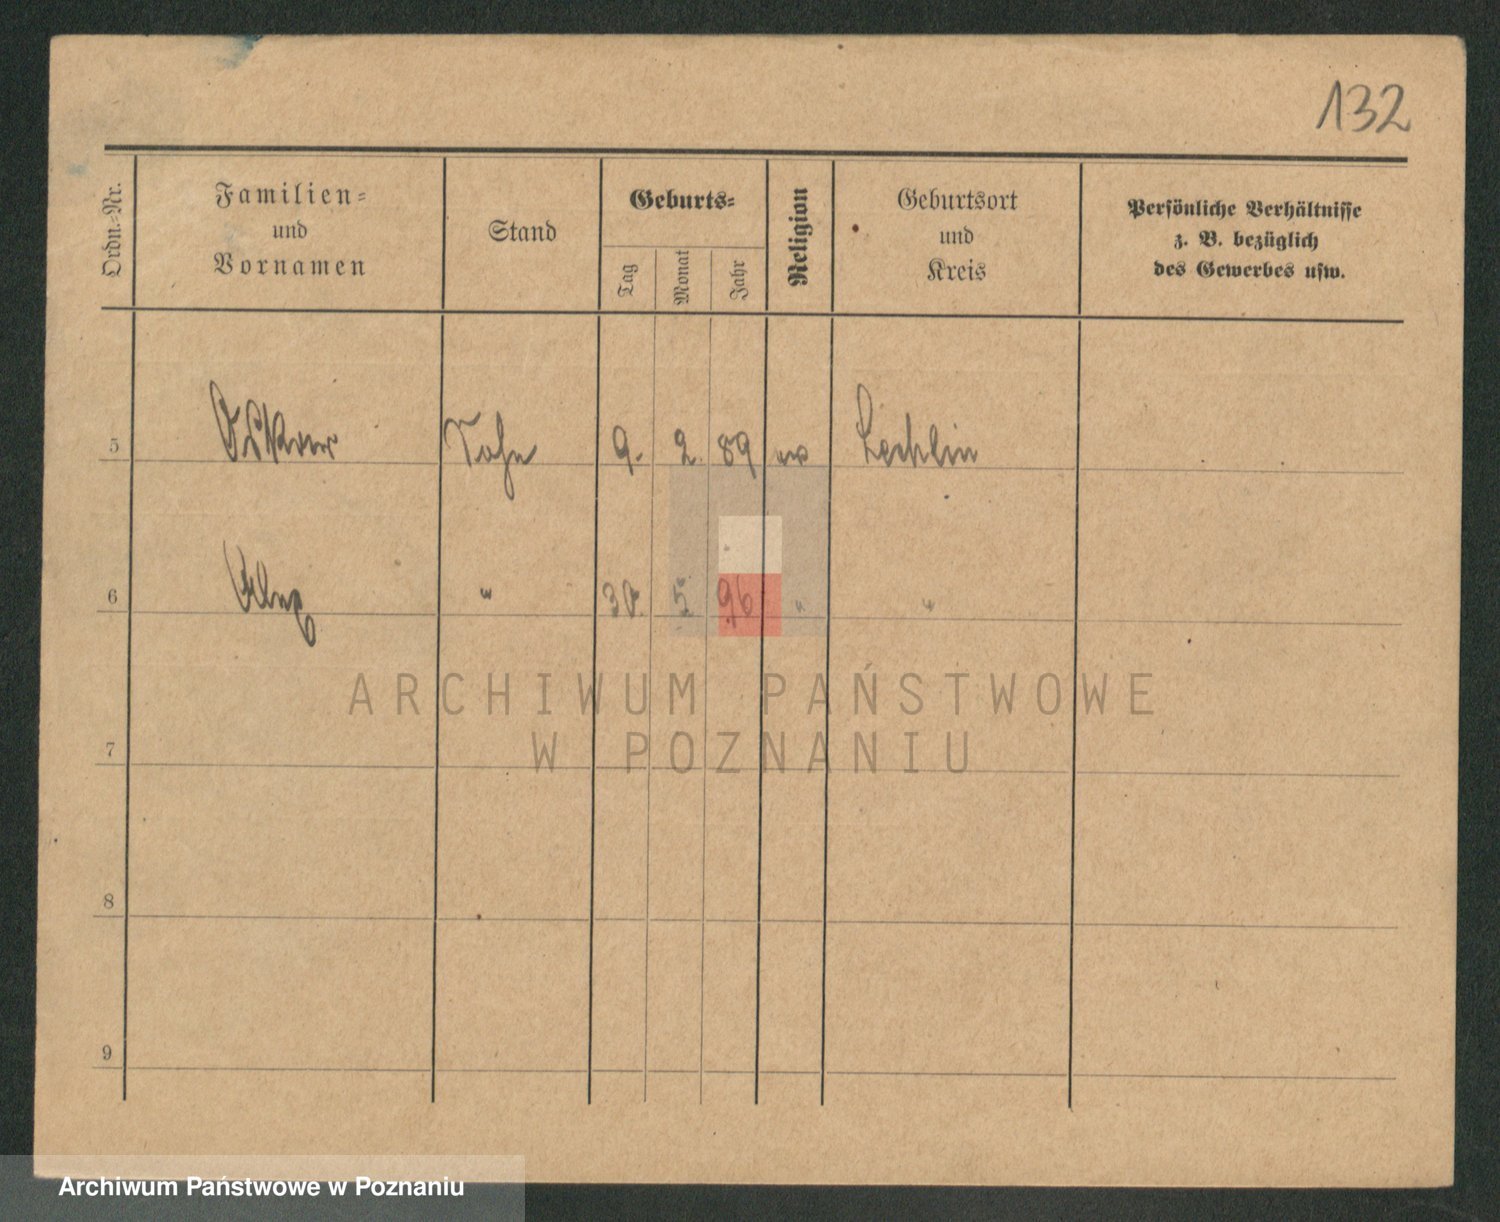 132
Ordn.-Nr.
Familien-
und
Vornamen
Stand
Geburts-
Tag
Monat
Jahr
Religion
Geburtsort
und
Kreis
Persönliche Verhältnisse
z. B. bezüglich
des Gewerbes usw.
5 Oskar Sohn 9. 2. 89 Lechlin
6 Alex " 30. 5. 96 " "
ARCHIWUM PAŃSTWOWE
W POZNANIU
7
8
9
Archiwum Państwowe w Poznaniu